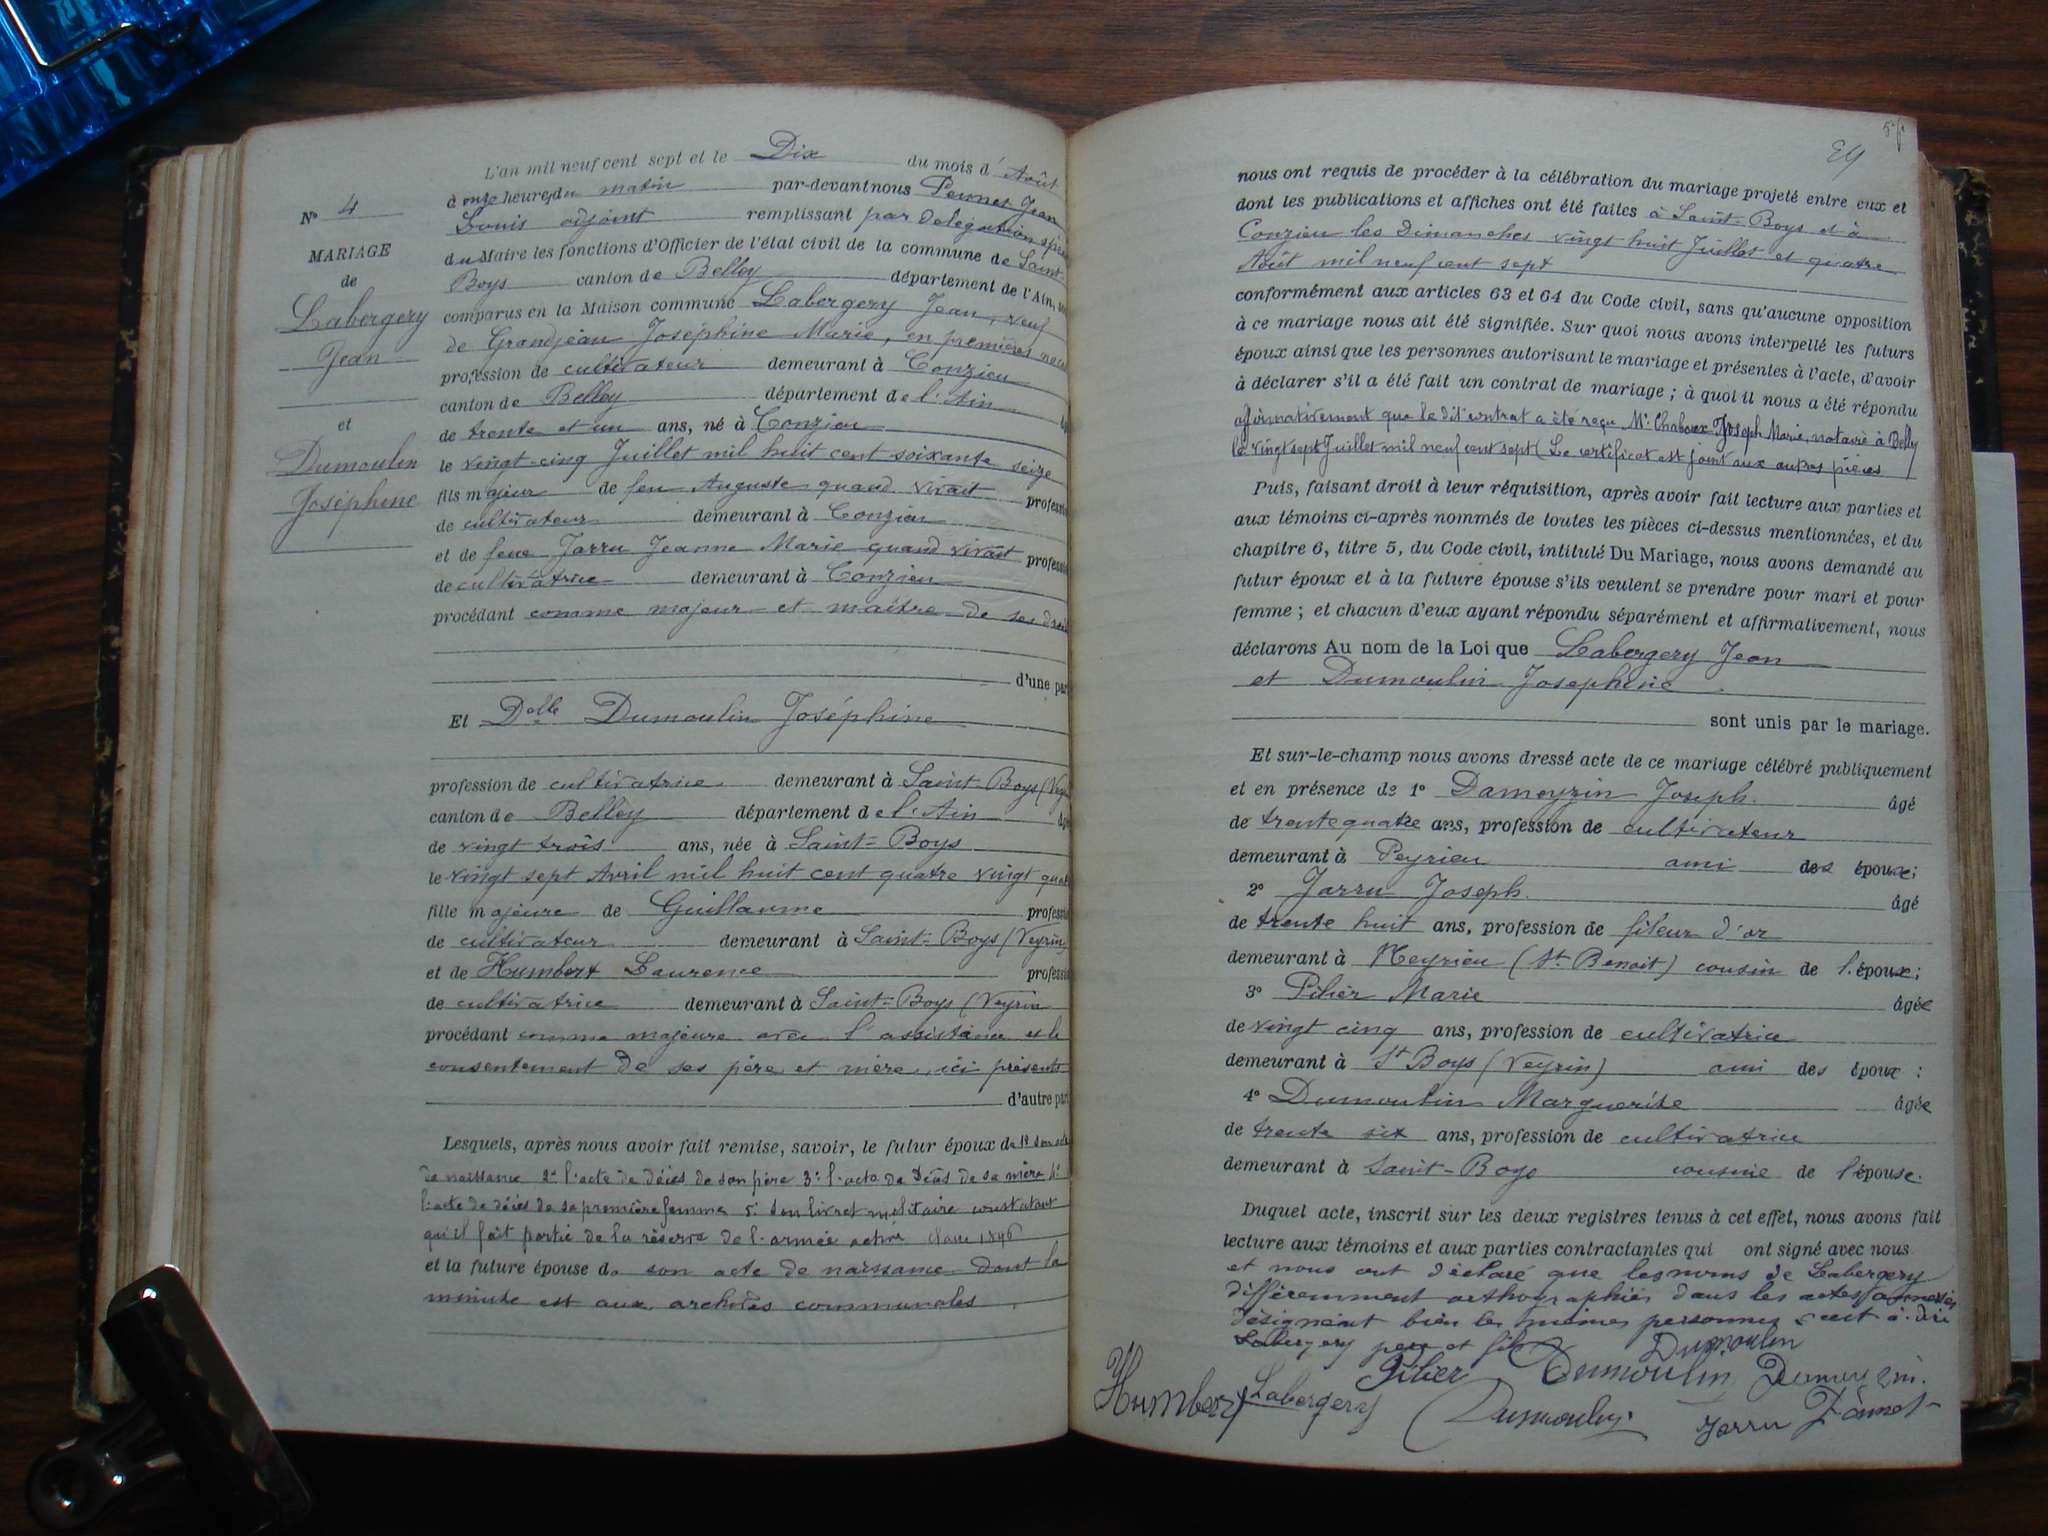 L'an mil neuf cent sept et le Dix du mois d'Août
à onze heures du matin par-devant nous Pennet Jean
Louis adjoint remplissant par délégation
du Maire les fonctions d'Officier de l'état civil de la commune de Saint
Boys canton de Belley département de l'Ain,
comparus en la Maison commune Labergery Jean, veuf
de Grandjean Joséphine Marie, en premières
profession de cultivateur demeurant à Conzieu
canton de Belley département de l'Ain
de trente et un ans, né à Conzieu
le vingt-cinq Juillet mil huit cent soixante seize
fils majeur de feu Auguste quand vivait
de cultivateur demeurant à Conzieu
et de feue Jarru Jeanne Marie quand vivait
de cultivatrice demeurant à Conzieu
procédant comme majeur et maître de ses
d'une
Et Delle Dumoulin Joséphine
profession de cultivatrice demeurant à Saint-Boys
canton de Belley département de l'Ain
de vingt trois ans, née à Saint-Boys
le vingt sept Avril mil huit cent quatre vingt
fille majeure de Guillaume
de cultivateur demeurant à Saint-Boys (Veyrin)
et de Humbert Laurence
de cultivatrice demeurant à Saint-Boys (Veyrin
procédant comme majeure avec l'assistance et le
consentement de ses père et mère, ici présents
d'autre
Lesquels, après nous avoir fait remise, savoir, le futur époux de 1° son acte
de naissance 2° l'acte de décès de son père 3° l'acte de décès de sa mère 4°
l'acte de décès de sa première femme 5° son livret militaire constatant
qu'il fait partie de la réserve de l'armée active classe 1896
et la future épouse de son acte de naissance dont la
minute est aux archives communales
N° 4
MARIAGE
de
Labergery
Jean
et
Dumoulin
Joséphine
nous ont requis de procéder à la célébration du mariage projeté entre eux et
dont les publications et affiches ont été faites à Saint-Boys et à
Conzieu les Dimanches vingt huit Juillet et quatre
Août mil neuf cent sept
conformément aux articles 63 et 64 du Code civil, sans qu'aucune opposition
à ce mariage nous ait été signifiée. Sur quoi nous avons interpellé les futurs
époux ainsi que les personnes autorisant le mariage et présentes à l'acte, d'avoir
à déclarer s'il a été fait un contrat de mariage ; à quoi il nous a été répondu
affirmativement que le dit contrat a été reçu Me Chaboux Joseph Marie, notaire à Belley
le vingt sept Juillet mil neuf cent sept (Le certificat est joint aux autres pièces)
Puis, faisant droit à leur réquisition, après avoir fait lecture aux parties et
aux témoins ci-après nommés de toutes les pièces ci-dessus mentionnées, et du
chapitre 6, titre 5, du Code civil, intitulé Du Mariage, nous avons demandé au
futur époux et à la future épouse s'ils veulent se prendre pour mari et pour
femme ; et chacun d'eux ayant répondu séparément et affirmativement, nous
déclarons Au nom de la Loi que Labergery Jean
et Dumoulin Josephine
sont unis par le mariage.
Et sur-le-champ nous avons dressé acte de ce mariage célébré publiquement
et en présence de 1° Dameyzin Joseph. âgé
de trente quatre ans, profession de cultivateur
demeurant à Peyrieu ami des époux;
2° Jarru Joseph. âgé
de trente huit ans, profession de fileur d'or
demeurant à Meyrieu (St. Benoit) cousin de l'époux;
3° Pilier Marie âgée
de vingt cinq ans, profession de cultivatrice
demeurant à St Boys (Veyrin) ami des époux :
4° Dumoulin Marguerite âgée
de trente six ans, profession de cultivatrice
demeurant à Saint-Boys cousine de l'épouse.
Duquel acte, inscrit sur les deux registres tenus à cet effet, nous avons fait
lecture aux témoins et aux parties contractantes qui ont signé avec nous
et nous ont déclaré que les noms de Labergery
différemment orthographiés dans les actes annexés
désignent bien les mêmes personnes c'est à dire
Labergery père et fils
Dumoulin
Pilier Dumoulin Dameyzin.
Humbert Labergery Dumoulin Jarru Pennet